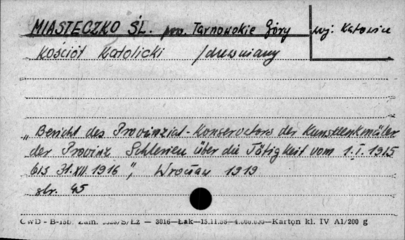 MIASTECZKO ŚL. pow. Tarnowskie Góry woj. Katowice
Kościół Katolicki /drewniany
"Bericht des Provinzial-Konservators der Kunstdenkmäler
der Provinz Schlesien über die Tätigkeit vom 1.I.1915
bis 31.XII 1916", Wrocław 1919
str. 45
CWD - B-156. Zam. Łak— Karton kl. IV A1/200 g